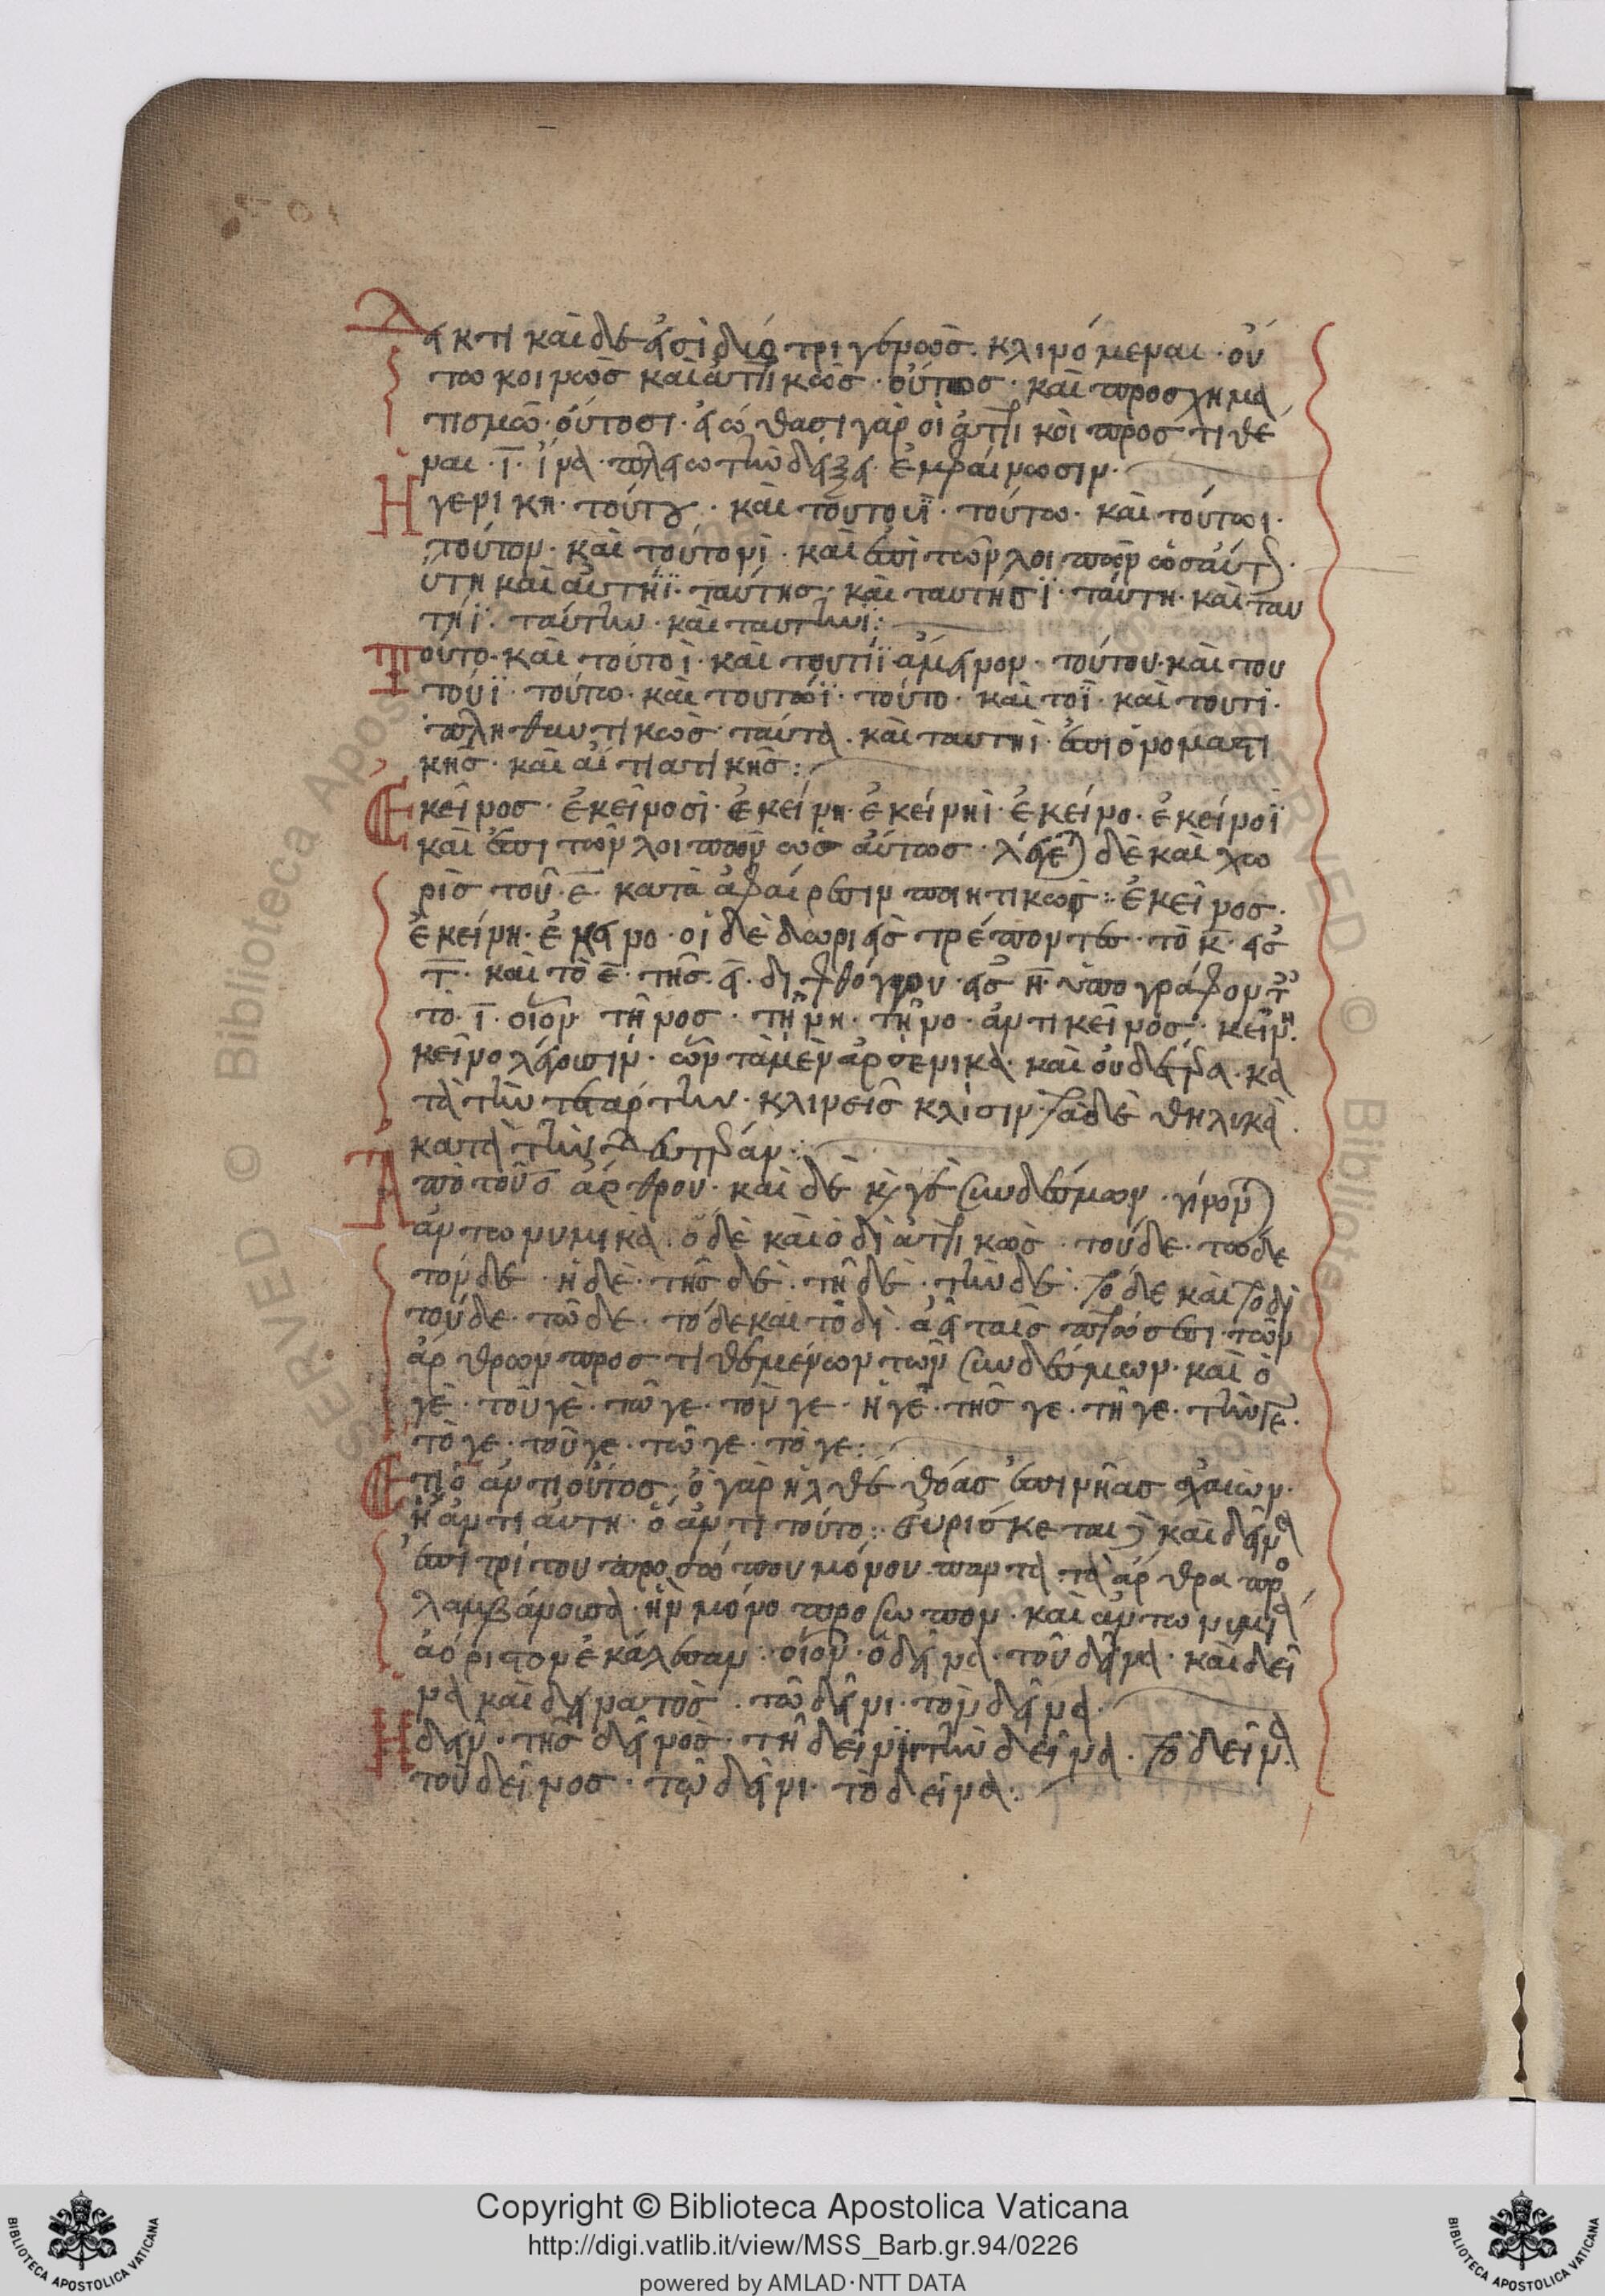 Δεικτικαὶ δέ εἰσι διὸ τριγενῶς κλινόμεναι· οὕ
τω κοινῶς καὶ ἀττικῶς· οὗτος· καὶ προσχημα
τισμῶ· οὑτοσί· εἰώθασι γὰρ οἱ ἀττικοὶ προστιθέ
ναι· ῑ· ἵνα πλείω τὴν δεῖξιν ἐμφαίνωσιν·
Ἡ γενικὴ· τούτου· καὶ τουτουῒ· τούτω· καὶ τούτωι·
τοῦτον· καὶ τουτονὶ· καὶ ἐπὶ τῶν λοιπῶν ὡσαύτως·
αὕτη καὶ αὑτηῒ· ταύτης· καὶ ταυτησῒ· ταύτη· καὶ ταυ
τηῒ· ταύτην· καὶ ταυτηνί:
Τοῦτο· καὶ τουτοῒ· καὶ τουτῒ ἄμεινον· τούτου· καὶ του
τουῒ· τούτω· καὶ τουτωῒ· τοῦτο· καὶ τοῒ· καὶ τουτί·
πληθυντικῶς ταῦτα· καὶ ταυτηὶ· ἐπὶ ὀνομαστι
κῆς· καὶ αἰτιατικῆς:
Ἐκεῖνος· ἐκεινοσὶ· ἐκείνη· ἐκεινηὶ· ἐκεῖνο· ἐκεινοῒ
καὶ ἐπὶ τῶν λοιπῶν ὡσαύτως· λέγεται δὲ καὶ χω
ρὶς τοῦ· ε̄· κατὰ ἀφαίρεσιν ποιητικῶς: ἐκεῖνος·
ἐκείνη· ἐκεῖνο· οἱ δὲ δωριεῖς τρέπουσι· τὸ κ̄· εἰς
τ̄· καὶ τὸ ε̄· τῆς· ει· διφθόγγου· εἰς η̄· ὑπογράφοντες
τὸ· ῑ· οἷον τῆνος· τήνη· τῆνο· ἀντὶ κεῖνος· κείνη·
κεῖνο λέγουσιν· ὧν τὰ μὲν ἀρσενικὰ· καὶ οὐδέτερα· κα
τὰ τὴν τετάρτην· κλίνεις κλίσιν· τὰ δὲ θηλυκὰ·
κατὰ τὴν δευτέραν:
Ἀπὸ τοῦ ὁ ἄρθρου· καὶ δὲ καὶ γὲ συνδέσμων· γίνονται
ἀντωνυμικὰ· ὅδε καὶ ὁδὶ ἀττικῶς· τοῦδε· τῶδε
τόνδε· ἥδε· τῆσδε· τῆδε· τήνδε· τόδε καὶ τοδὶ
τοῦδε· τῶδε· τόδε καὶ τοδὶ· ἀεὶ ταῖς πτώσεσι· τῶν
ἄρθρων προστιθεμένων τῶν συνδέσμων· καὶ ὅ
γε· τοῦγε· τῶγε· τόνγε· ἥγε· τῆσγε· τῆγε· τήνγε·
τόγε· τοῦγε· τῶγε· τόγε:
ἀντὶ οὗτος· ὁ γὰρ ἦλθε θοὰς ἐπὶ νῆας ἀχαιῶν·
ἡ ἀντὶ αὕτη· ὃ ἀντὶ τοῦτο: εὑρίσκεται καὶ δεῖνα
ἐπὶ τρίτου προσώπου μόνου πάντα τὰ ἄρθρα προσ
λαμβάνουσα· ἣν μόνο προσωπον· καὶ ἀντωνυμία
ἀόριστον ἐκάλεσαν: οἷον· ὁ δεῖνα· τοῦ δεῖνα· καὶ δεῖ
να καὶ δείνατος· τῶ δεῖνι· τὸν δεῖνα·
Ἡ δεῖν· τῆς δεῖνος· τῆ δεῖνι· τὴν δεῖνα· τὸ δεῖνα·
τοῦ δεῖνος· τῶ δεῖνι· τὸ δεῖνα:
Copyright © Biblioteca Apostolica Vaticana
http://digi.vatlib.it/view/MSS_Barb.gr.94/0226
powered by AMLAD·NTT DATA